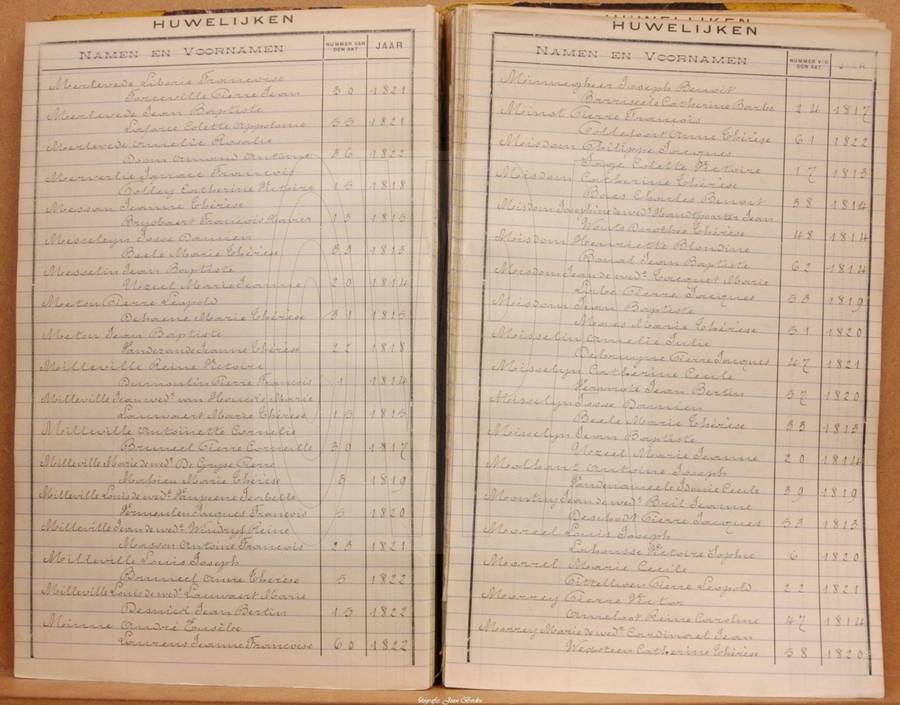 HUWELIJKEN
NAMEN EN VOORNAMEN NUMMER VAN DEN AKT JAAR
Merlevede Liborie Francoise
Torreville Pierre Jean 30 1821
Merlevede Jean Baptiste
Laforce Colette Appolonie 55 1821
Merlevede Amelie Rosalie
Doom Armand Antoine 36 1822
Merverlie Ignace Francois
Colley Catherine Victoire 15 1818
Messan Jeanne Thérèse
Brysbaert Francois Xavier 13 1815
Messeleyn Josse Damien
Beele Marie Thérèse 33 1813
Messelin Jean Baptiste
Uzeel Marie Jeanne 20 1814
Meeton Pierre Leopold
Dehaene Marie Thérèse 31 1815
Meeton Jean Baptiste
Vanderande Jeanne Thérèse 22 1818
Milleville Reine Victoire
Dumoulin Pierre Francois 1 1814
Milleville Jean wed. van Marie
Lauwaert Marie Thérèse 15 1815
Milleville Antoinette Cornelie
Bruneel Pierre Corneille 30 1817
Milleville Marie de wed. De Gryse Pierre
Mahieu Marie Therese 5 1819
Milleville Louis de wed. Isabelle
Vermeulen Jacques Francois 5 1820
Milleville Jean de wed. Reine
Masson Antoine Francois 23 1821
Milleville Louis Joseph
Bruneel Anne Thérèse 5 1822
Milleville Louis de wed. Lauwaert Marie
Desnick Jean Bertin 15 1822
Minne André Eusèbe
Laurens Jeanne Francoise 60 1822
HUWELIJKEN
HUWELIJKEN
NAMEN EN VOORNAMEN NUMMER VAN DEN AKT JAAR
Minnegheer Joseph Benoit
Barriseele Catherine Barbe 24 1817
Minot Pierre Francois
Anne Thérèse 61 1822
Misdom Philippe Jacques
Colette Victoire 17 1813
Misdom Catherine Thérèse
Baes Charles Benoit 38 1814
Misdom Josephine de wed. Jean
Wouts Dorothee Thérèse 48 1814
Misdom Henriette Blondine
Bonat Jean Baptiste 62 1814
Misdom Jean de wed. Cocquet Marie
Pierre Jacques 53 1819
Misdom Jean Baptiste
Maes Marie Thérèse 51 1820
Misselin Amelie Julie
Pierre Jacques 47 1821
Misselyn Catherine Cecile
Vermote Jean Bertin 57 1820
Misselyn Josse Damien
Beele Marie Thérèse 33 1813
Misselyn Jean Baptiste
Uzeel Marie Jeanne 20 1814
Molhant Antoine Joseph
Vandenameele Idonie Cecile 39 1819
Montrij Jean de wed. Bril Jeanne
Pierre Jacques 53 1813
Moreel Louis Joseph
Lahousse Victoire Sophie 6 1820
Morrel Marie Cecile
Cittellioen Pierre Leopold 22 1821
Morrey Pierre Victor
Reine Caroline 47 1814
Morrey Marie de wed. Cardinael Jean
Wexsteen Catherine Thérèse 58 1820
fotografie Jean